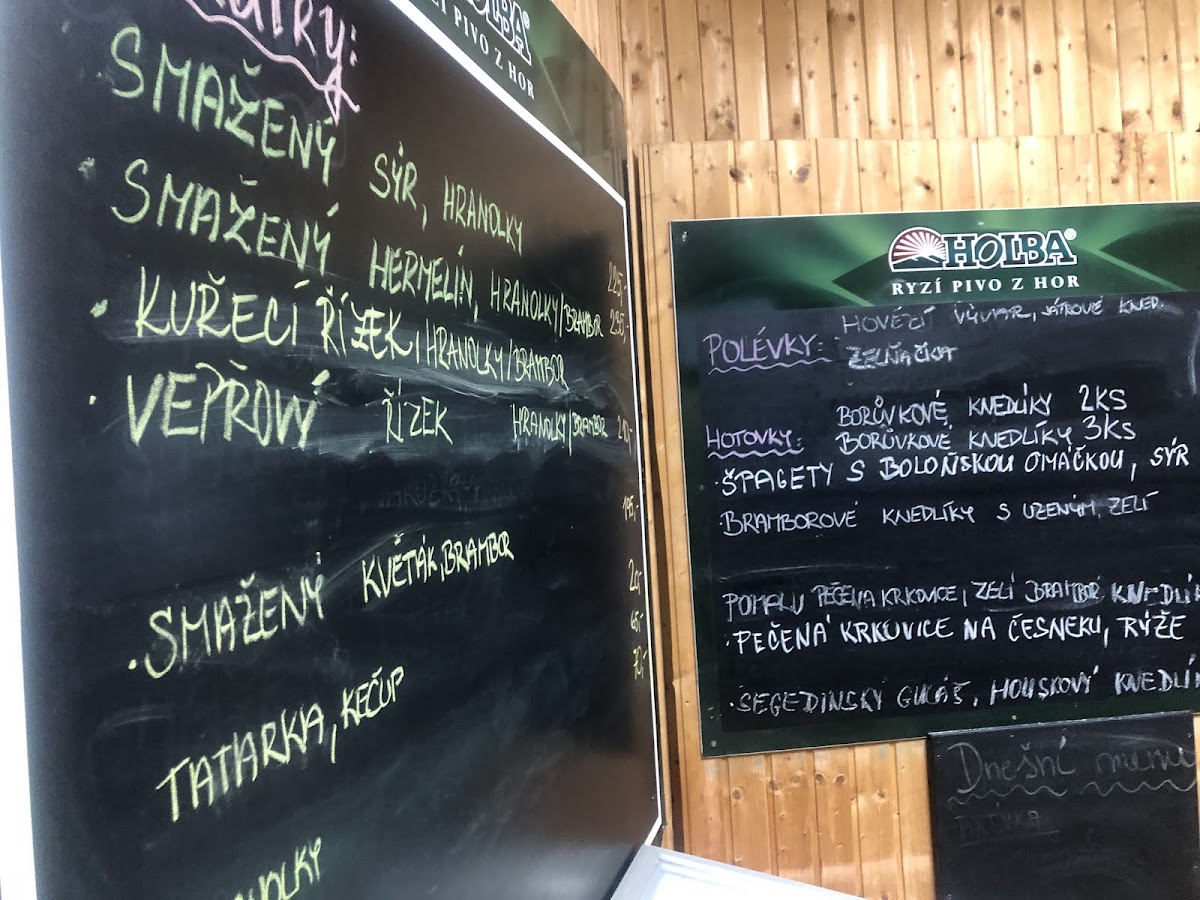 HOLBA
PIVO Z HOR
SMAŽENÝ SÝR, HRANOLKY
SMAŽENÝ HERMELÍN, HRANOLKY/BRAMBOR 225,-
KUŘECÍ ŘÍZEK, HRANOLKY/BRAMBOR 235,-
VEPŘOVÝ ŘÍZEK HRANOLKY/BRAMBOR
195,-
SMAŽENÝ KVĚTÁK, BRAMBOR
20,-
65,-
70,-
TATARKA, KEČUP
HOLBA®
RYZÍ PIVO Z HOR
POLÉVKY: HOVĚZÍ VÝVAR, JÁTROVÉ KNED.
ZELŇAČKA
BORŮVKOVÉ KNEDLÍKY 2KS
HOTOVKY: BORŮVKOVÉ KNEDLÍKY 3KS
ŠPAGETY S BOLOŇSKOU OMÁČKOU, SÝR
BRAMBOROVÉ KNEDLÍKY S UZENÝM, ZELÍ
POMALU PEČENÁ KRKOVICE, ZELÍ BRAMBOR. KNEDLÍK
PEČENÁ KRKOVICE NA ČESNEKU, RÝŽE
SEGEDINSKÝ GULÁŠ, HOUSKOVÝ KNEDLÍK
Dnešní menu